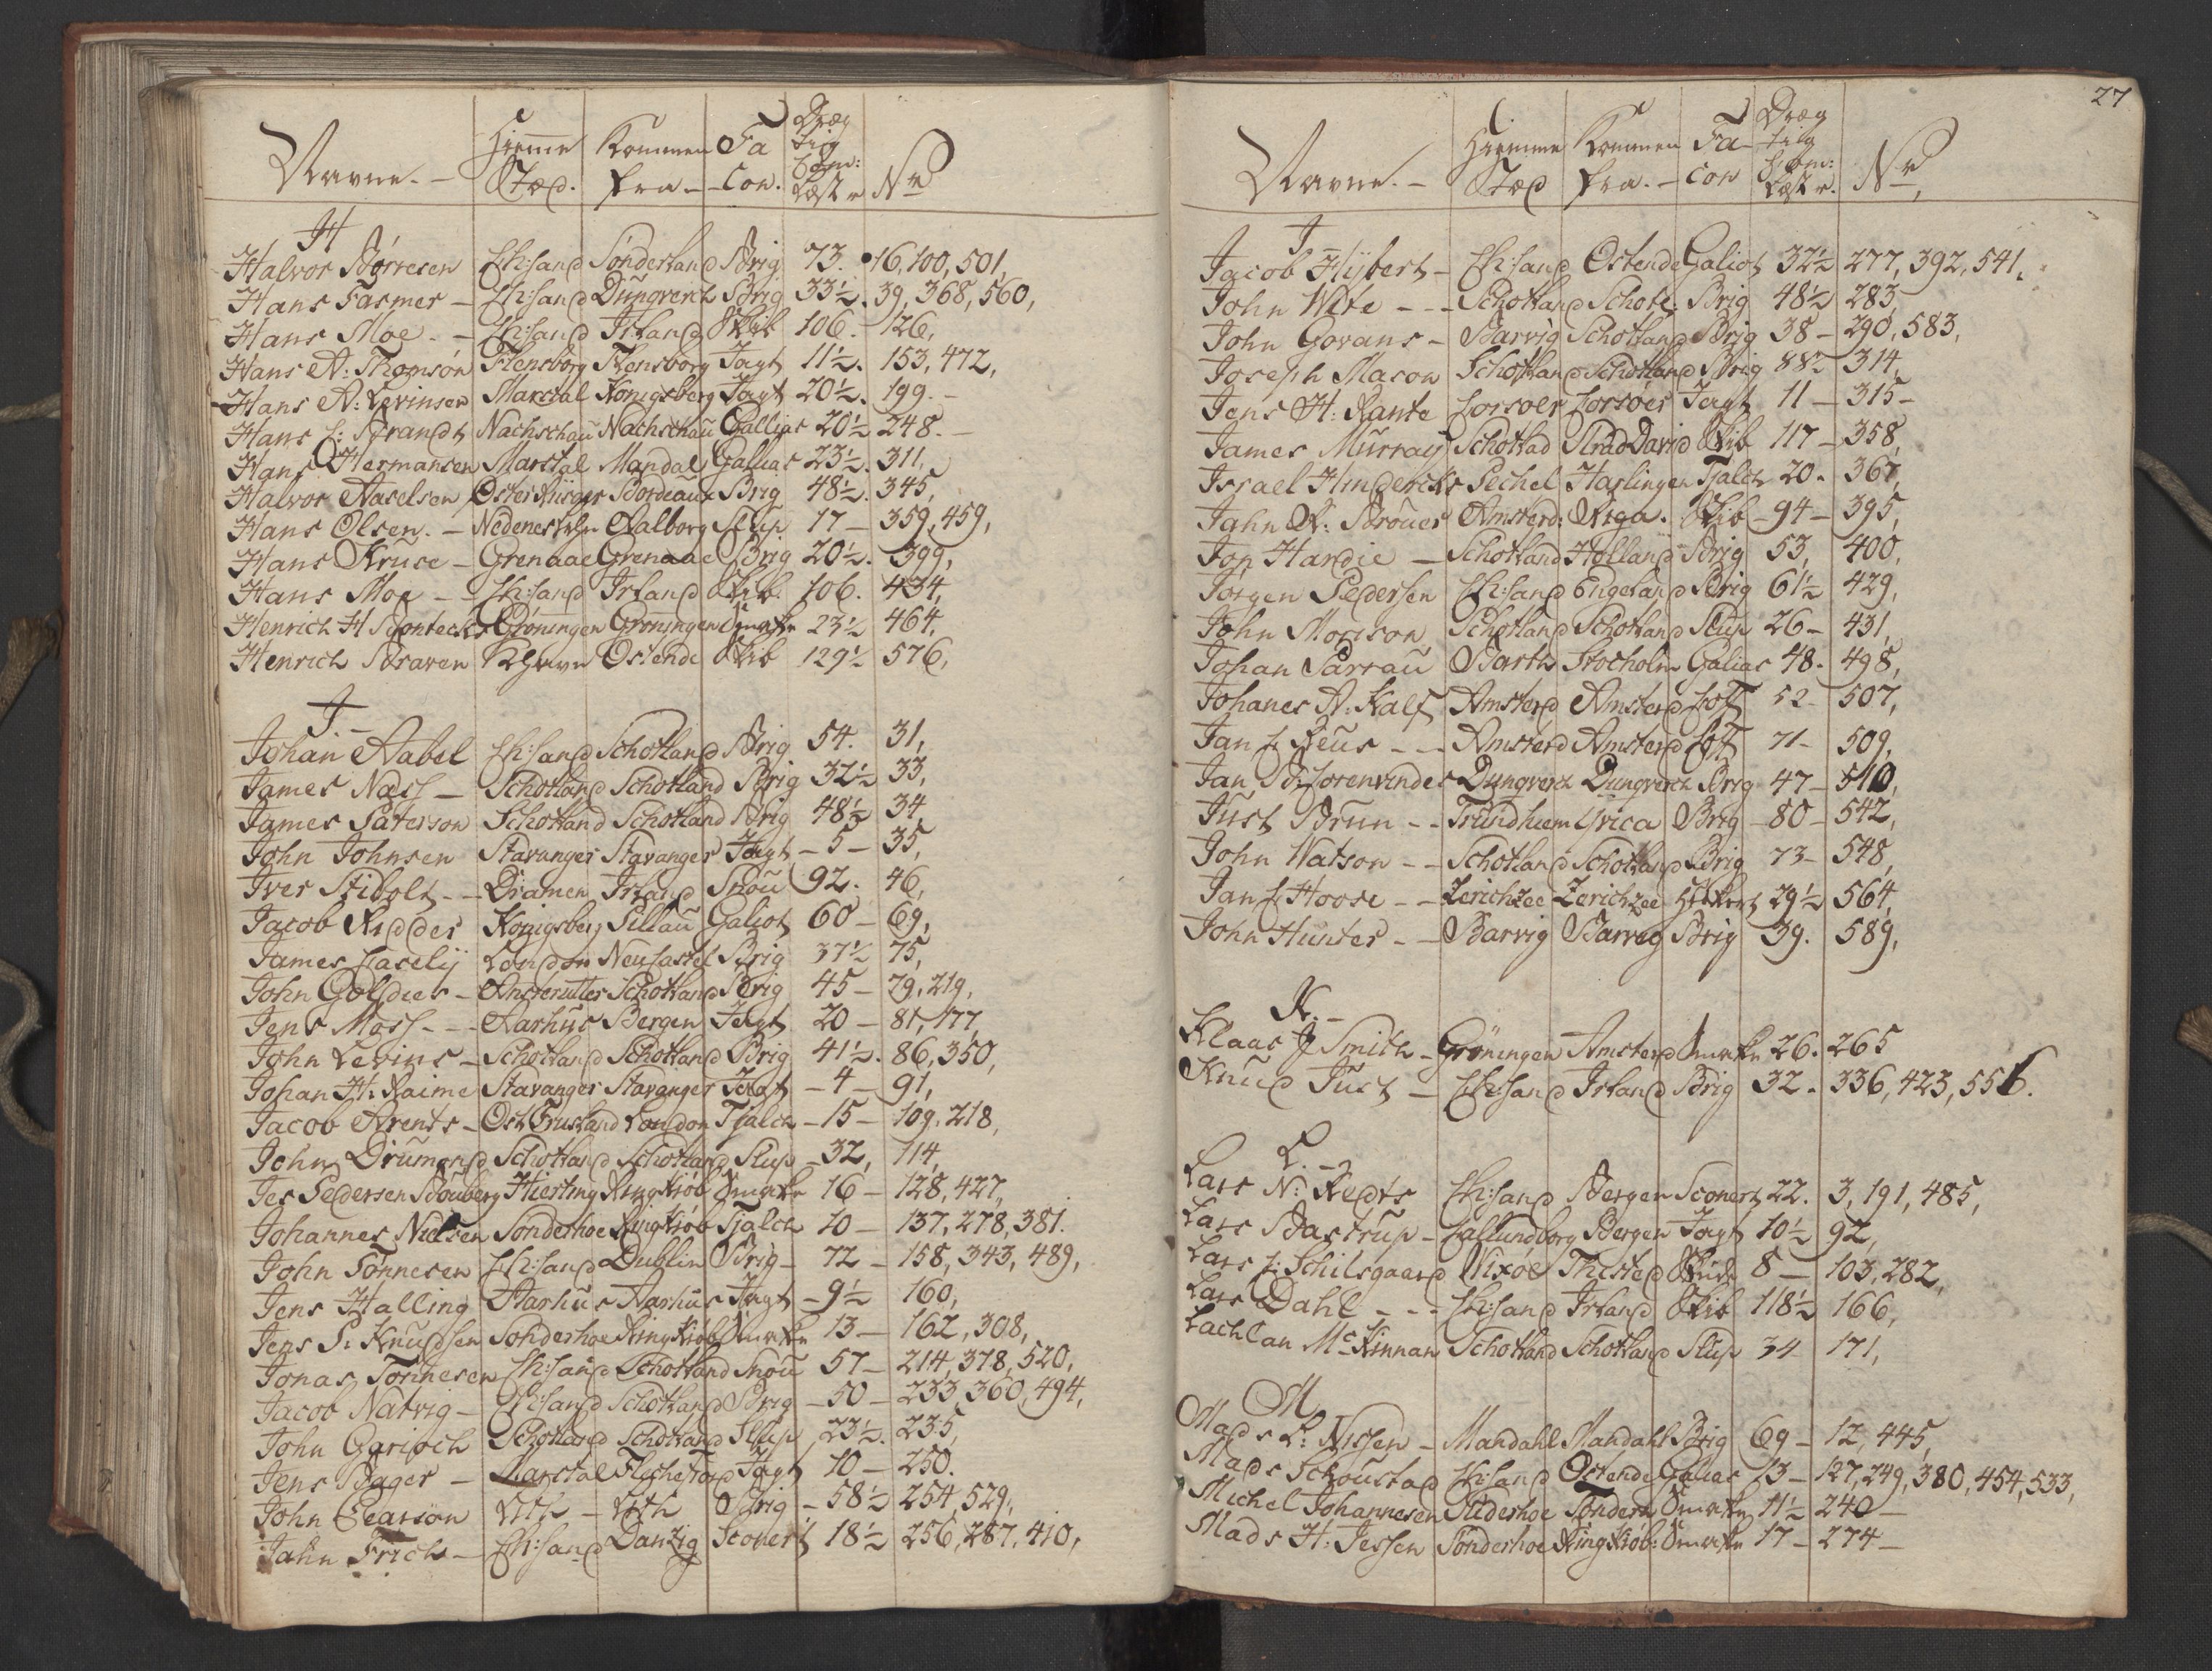 Navne. - Hiemme Sted. Kommen fra - Fa Con. Dræg tig Com: Læst r No
H
Halvor Børresen Ch:sand Sönderland Brig 73. 16, 100, 501,
Hans Fasmer - Ch:sand Dünqverch Brig 33½. 39, 368, 560,
Hans Moe - - Ch:sand Irland Skib 106. - 126,
Hans A: Thomsön Flensborg Flensborg Jagt 11½. 153, 472,
Hans A: Levinsen Marstal Konigsberg Jagt 20½. 199. -
Hans C: Brandt Nachschau Nachschau Gallias 20½ 248. -
Hans Hermansen Marstal Mandal Galias 23½. 311,
Halvor Axelsen Öster Riisøer Bordeaux Brig 48½. 345,
Hans Olsen. - Nedenes Aalborg Slup 17 - 359, 459,
Hans Kruse - Grenaae Grenaae Brig 20½. 399,
Hans Moe - Ch:sand Irland Skib 106. 434,
Henrich H Bontecke Gröningen Gröningen Smakke 23½ 464,
Henrich Braren Khavn Ostende Skib 129½ 576,
J. -
Johan Aabel Ch:sand Schotland Brig 54. 31,
James Næss - Schotland Schotland Brig 32½ 33,
James Paterson Schotland Schotland Brig 48½ 34,
John Johnsen Stavanger Stavanger Jagt - 5 - 35,
Iver Stibolt - - Dramen Irland Snou 92. 46,
Jacob Ridder Königsberg Pillau Galiot 60 - 69,
James Caselÿ London Neucastel Brig 37½ 75,
John Goldier - Ansterutter Schotland Brig 45 - 79, 219,
Jens Moss - - - Aarhus Bergen Jagt 20 - 81, 177,
John Levins - Schotland Schotland Brig 41½. 86, 350,
Johan H: Raime Stavanger Stavanger Jagt - 4 - 91,
Jacob Arents - Ost Frusland London Tjalck - 15 - 109, 218,
John Drumond Schotland Schotland Slup - 32, 114,
Jes Pedersen Bouberg Hierting Ringkiøb Smakke 16 - 128, 427,
Johannes Nielsen Sonderhoe Ringkiøb Tjalck 10 - 137, 278, 381.
John Tönnesen Ch:sand Dublin Brig - 72 - 158, 343, 489,
Jens Halling Aarhus Aarhus Jagt - 9½ 160,
Jens P: Knudsen Sonderhoe Ringkiøb Smakke 13 - 162, 308,
Jonas Tönnesen Ch:sand Schotland Snou 57 - 214, 378, 520,
Jacob Natvig - Ch:sand Schotland Brig - 50 - 233, 360, 494,
John Garioch Schotland Schotland Slup 23½. 235,
Jens Bager - Marstal Jagt 10 - 250.
John Pearson Lith - Lith Brig - 58½ 254, 529,
Jahn Frich - Ch:sand Danzig Sconert 18½ 256, 287, 410,
27
Navne. - Hiemme Sted Kommen fra. - Fa- con Dræg tilg Com: Læst r. No,
J -
Jacob Hÿbert - Ch:sand Ostende Galiot 32½ 277, 392, 541,
John Wite - - - Schotland Schotl: Brig 48½ 283,
John Govans - Barvig Schotland Brig 38 - 290, 583,
Joseph Mason Schotland Schotland Brig 88½ 314,
Jens H: Rante Corsoer Corsoer Jagt 11 - 315 -
James Murray Schotlad Strad David Skib 117 - 358,
Israel Hindercks Pechel Harlingen Tjalck 20 - 367,
Jahn A: Bröuer Amsterd: Riga. Skib - 94 - 395,
Jon Hardie - Schotland Holland Brig 53, 400,
Jörgen Pedersen Ch:sand Engeland Brig 61½ 429,
John Morison Schotland Schotland Slup 26 - 431,
Johan Parrau Barth Stocholm Galias 48 - 498,
Johanes A: Kalf Amsterd Amsterd Coff 52 - 507,
Jan C: Reus - - - Amsterd Amsterd Coff 71 - 509,
Jan B: Corenvinder Dunqverck Dunqverck Brig 47 - 510,
Just Brun - - Trundhiem Yrica Brig - 80 - 542,
John Watson - - Schotland Schotland Brig 73 - 548,
Jan C: Hoose - - Zerichzee Zerichzee Hukert 29½ 564,
John Hunter - - Barvig Barvig Brig 39. 589,
K. -
Klaas J Smith - Gröningen Amsterd Smakke 26. 265
Knud Just - Ch:sand Irland Brig 32 - 336, 423, 556.
L. -
Lars N: Redts Ch:sand Bergen Sconert 22. 3, 191, 485,
Lars Bastrup - Callundborg Bergen Jagt 10½ 92,
Lars C: Schilsgaard Vixöe Thisted Skude 8 - 103, 282,
Lars Dahl - - - Ch:sand Irland Skib 118½ 166,
Lachlan McKinnan Schotland Schotland Slup 34 171,
M
Mads L: Nissen - Mandahl Mandahl Brig 69 - 12, 445,
Mads Schoustad Ch:sand Ostende Galias 13 - 127, 249, 380, 454, 533,
Michel Johannesen Süderhoe Tøndern Smakke 11½ 240 -
Mads H: Jessen Sönderhoe Ringkiøb: Smakke 17 - 274 -